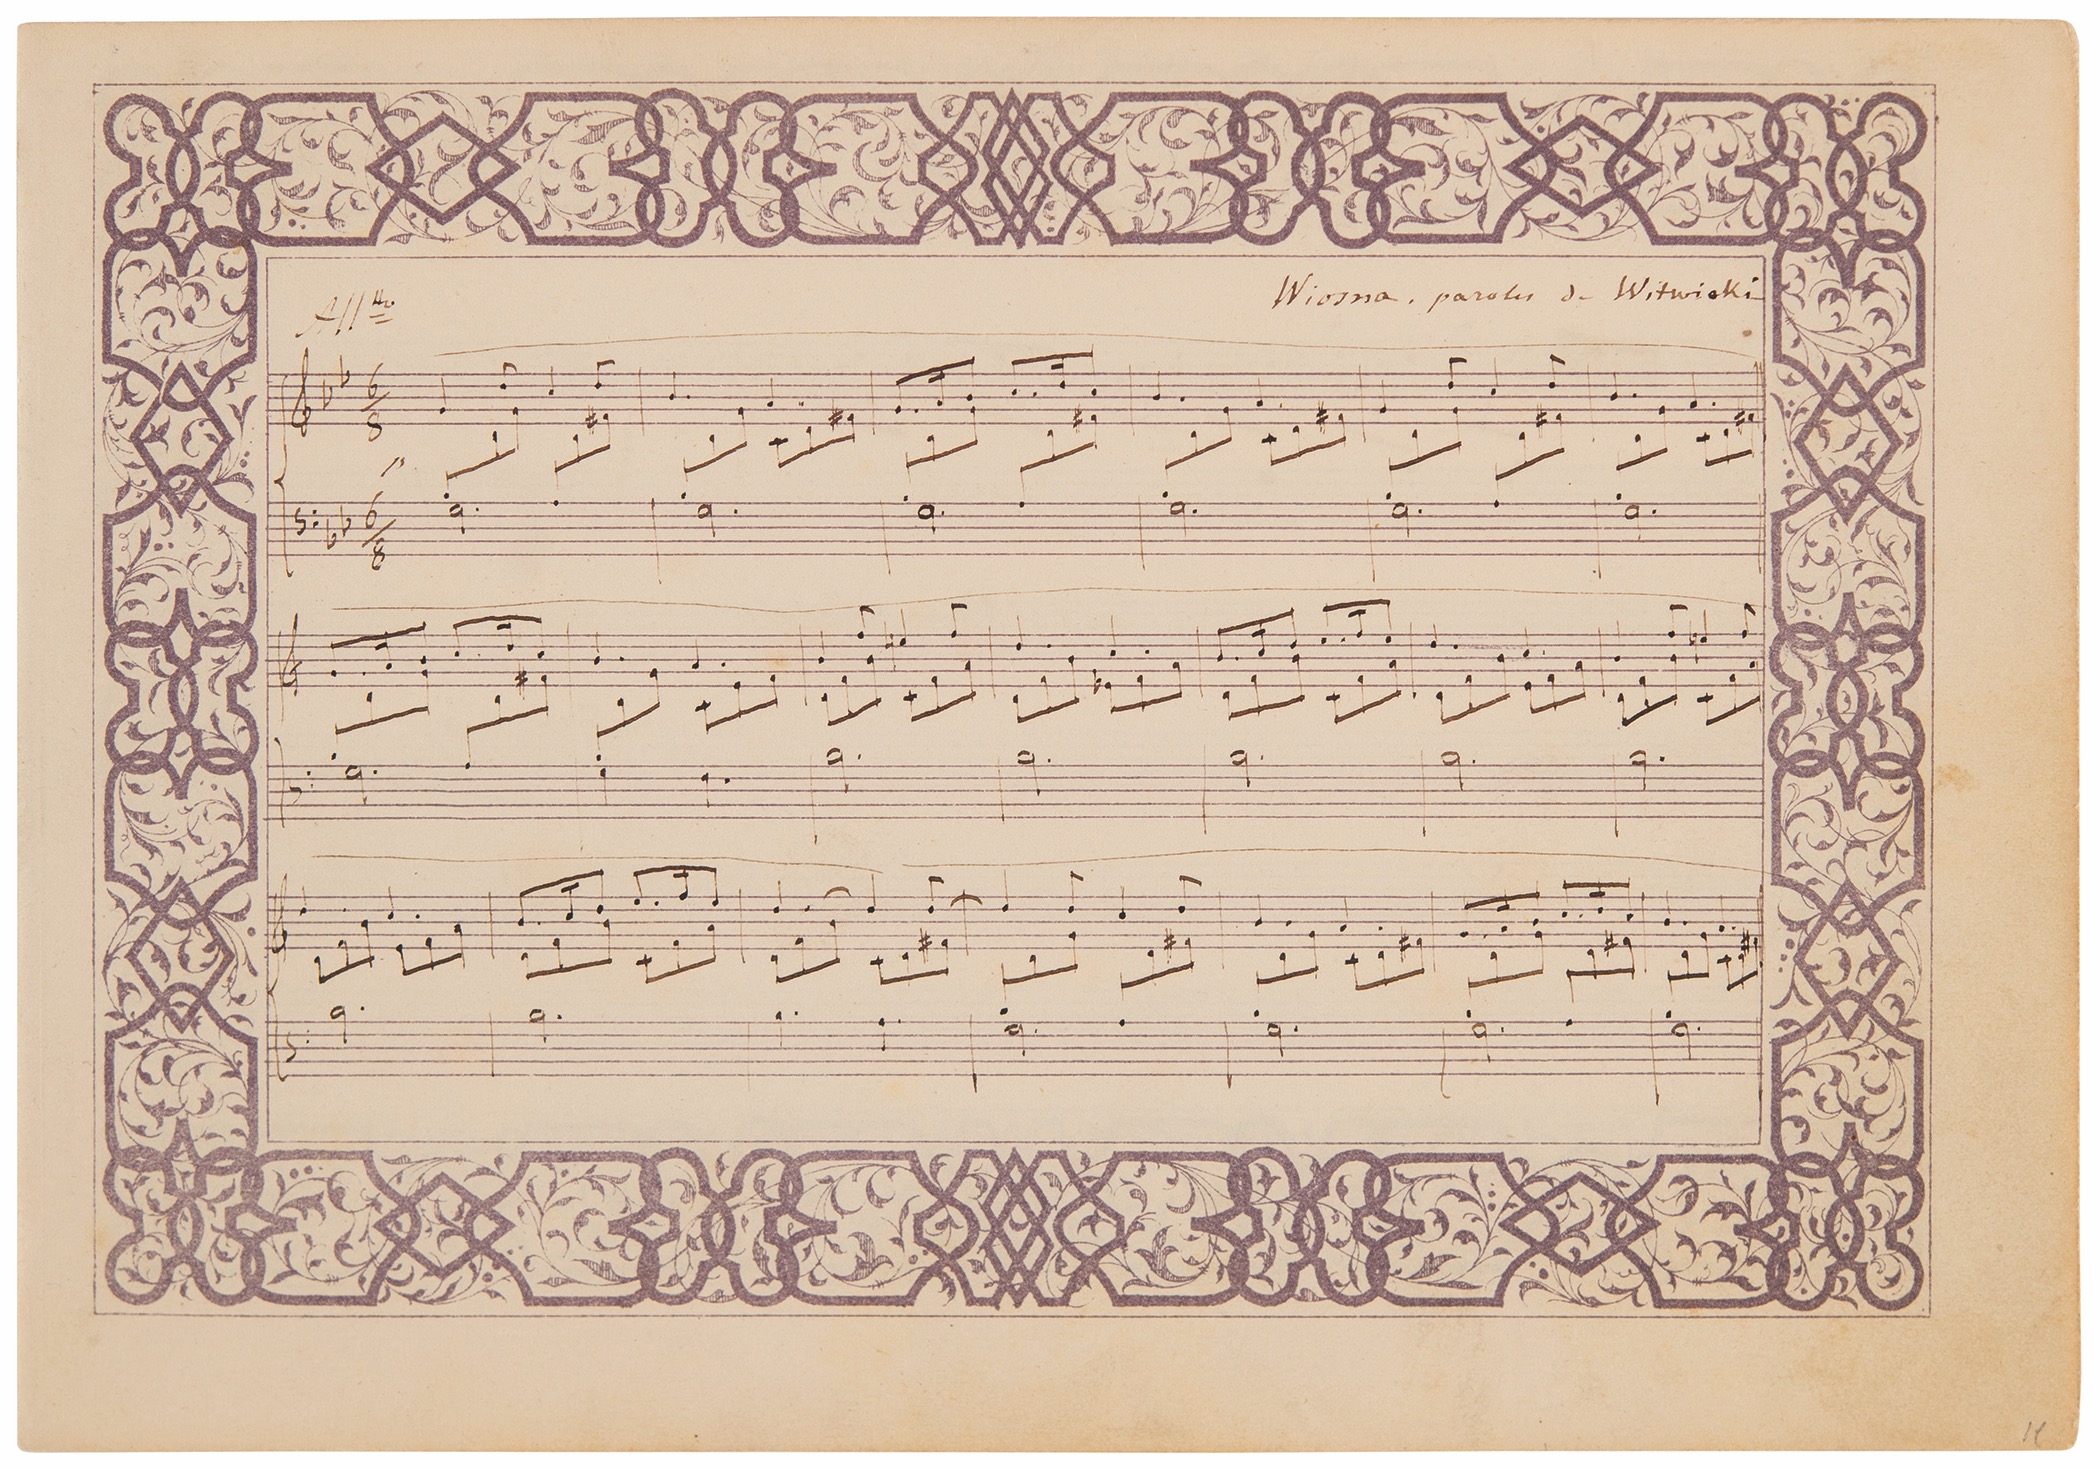 Wiosna. paroles de Witwicki
All<sup>tto</sup>
6
8
p
6
8